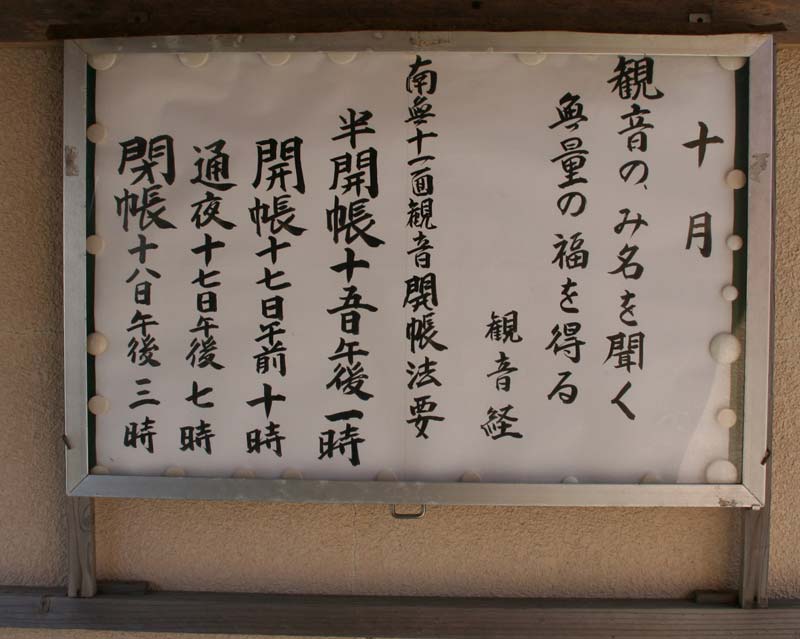 十月
観音のみ名を聞く
無量の福を得る
観音経
南無十一面観音開帳法要
半開帳十五日午後一時
開帳十七日午前十時
通夜十七日午後七時
閉帳十八日午後三時